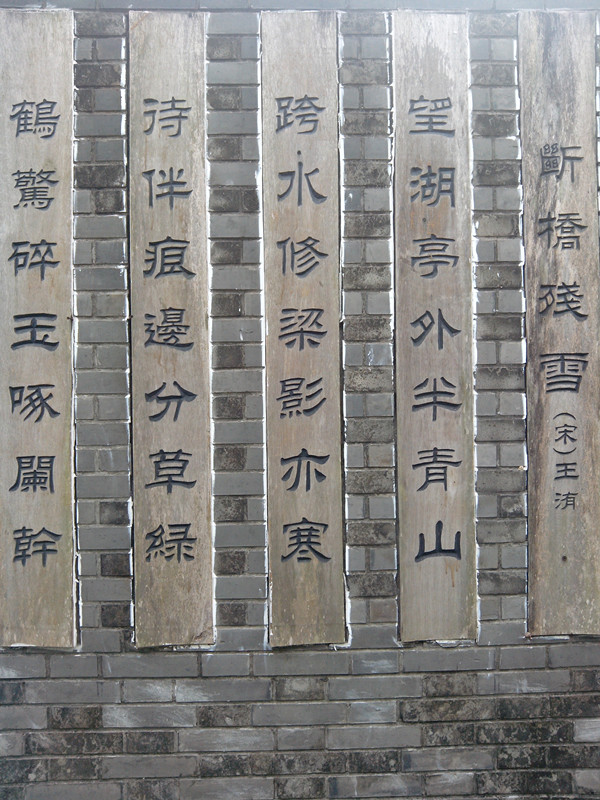 斷橋殘雪（宋）王洧
望湖亭外半青山
跨水修梁影亦寒
待伴痕邊分草綠
鶴驚碎玉啄闌幹